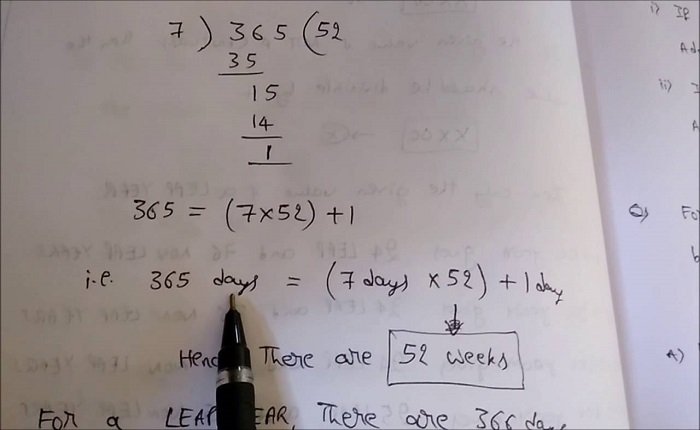 7 ) 365 ( 52
35
15
14
1
365 = (7×52) + 1
i.e. 365 days = (7 days × 52) + 1 day
There are 52 weeks
For a LEAP YEAR, There are 366 days
i)
ii)
Q)
A)